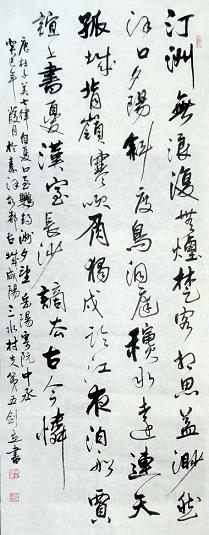 汀洲無浪復無煙楚客相思益渺然
漢口夕陽斜度鳥洞庭穐水遠連天
孤城背嶺寒吹角獨戍臨江夜泊船賈
誼上書憂漢室長沙謫去古今憐
唐杜子美七律自夏口至鸚鵡洲夕望岳陽寄阮中丞
癸巳年葭月於秦都古城咸陽三水村夫第五劍書